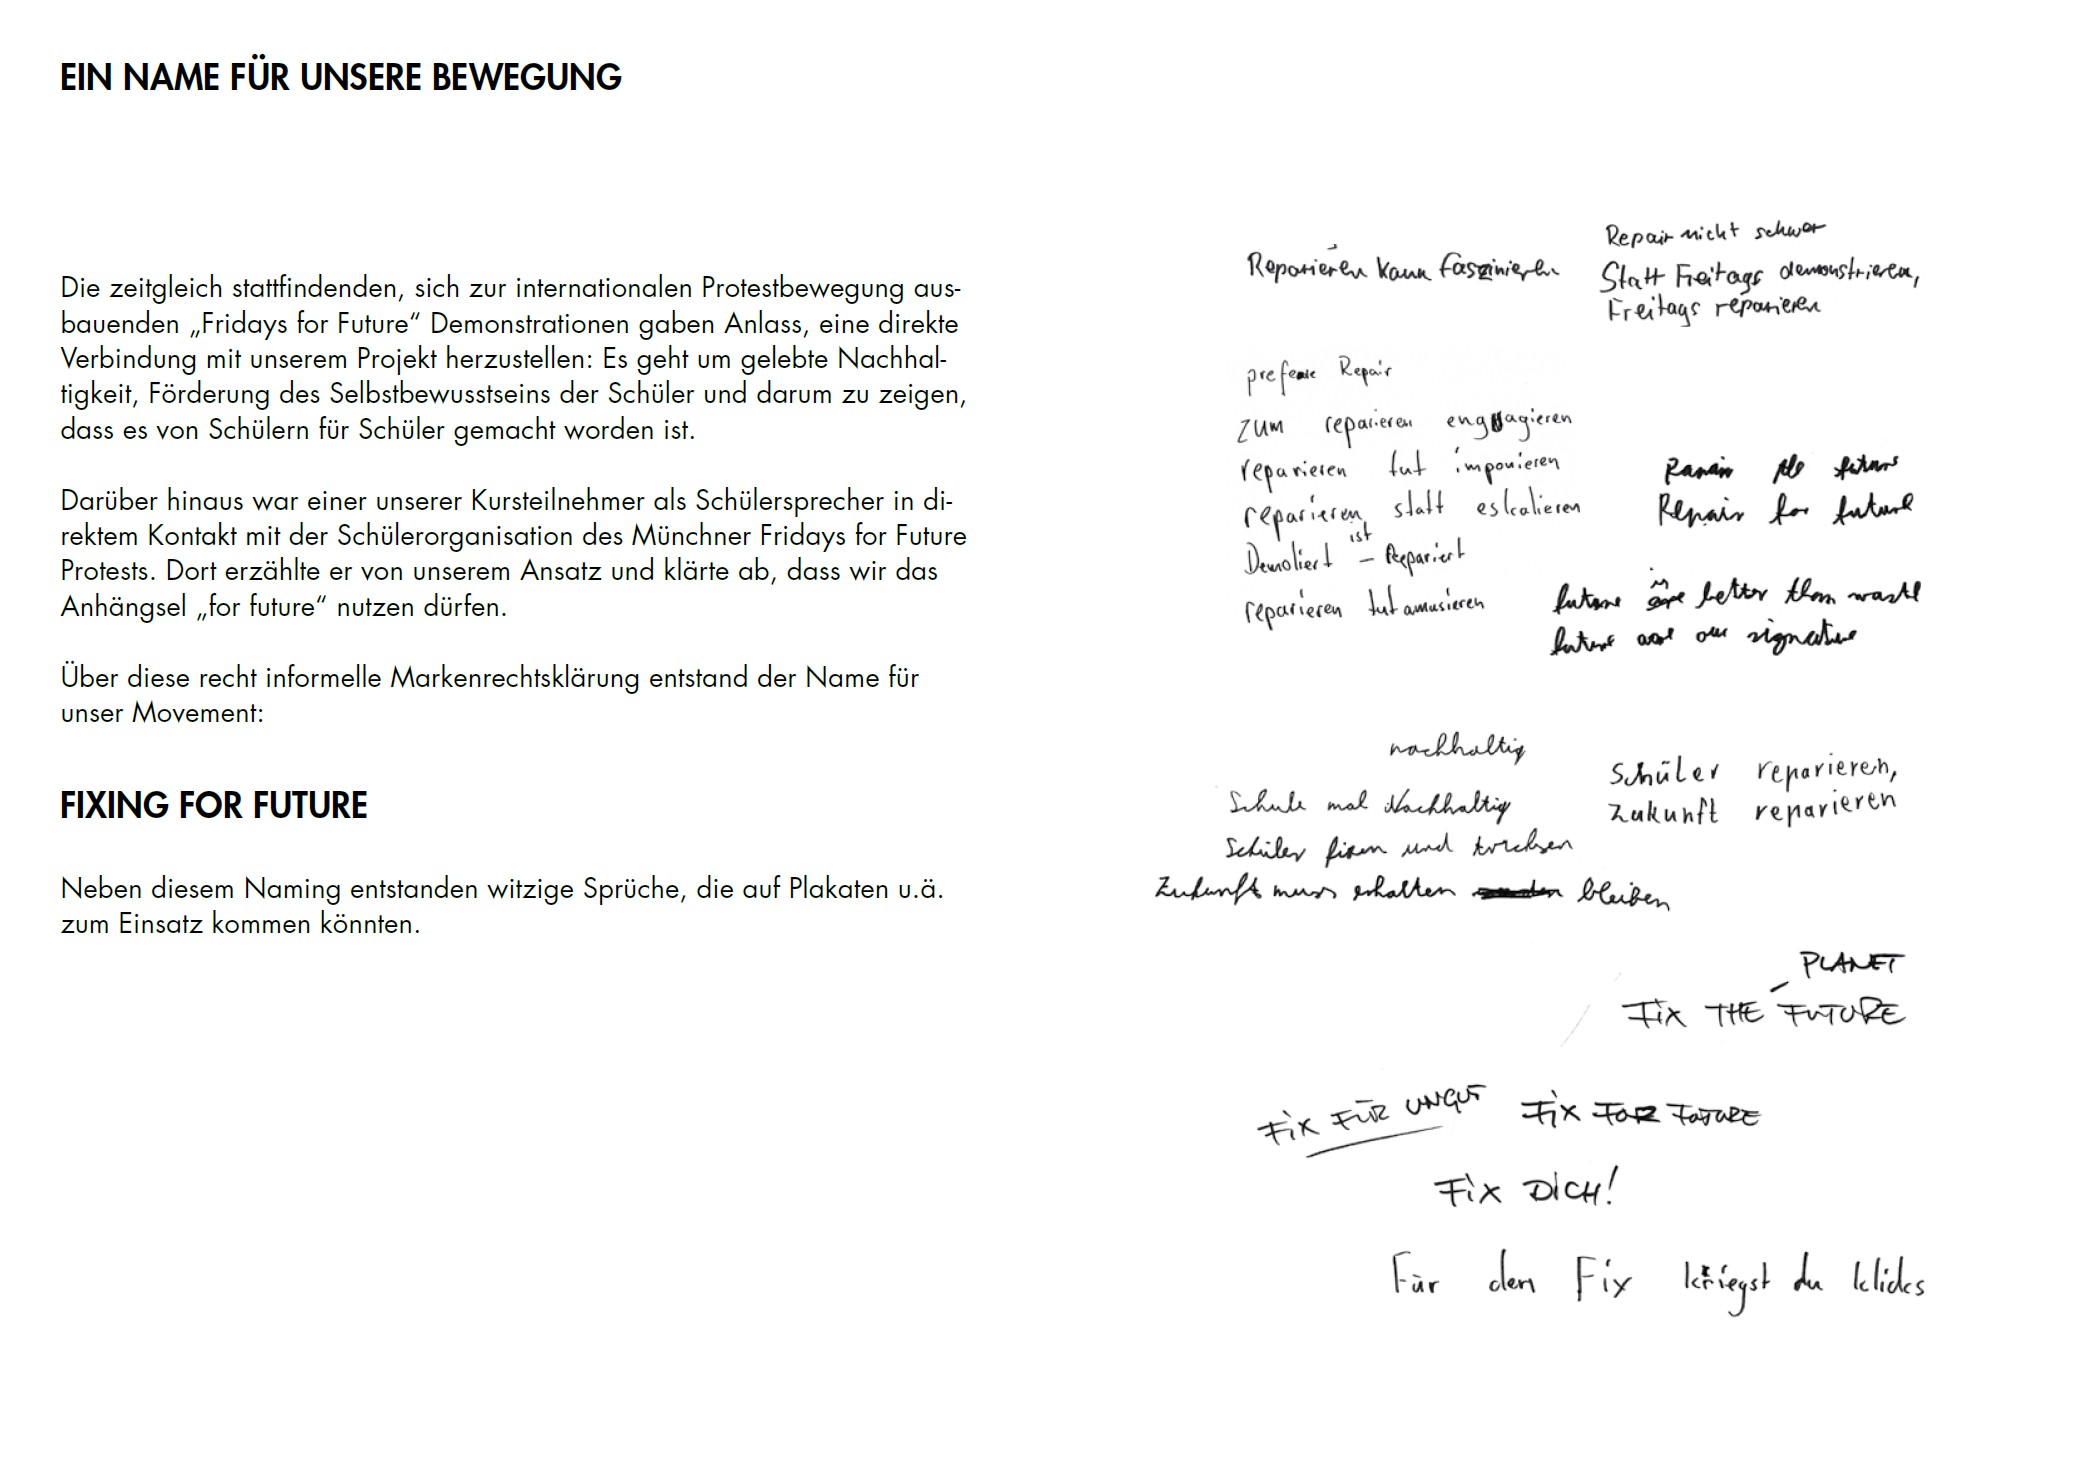 EIN NAME FÜR UNSERE BEWEGUNG
Die zeitgleich stattfindenden, sich zur internationalen Protestbewegung aus-
bauenden „Fridays for Future“ Demonstrationen gaben Anlass, eine direkte
Verbindung mit unserem Projekt herzustellen: Es geht um gelebte Nachhal-
tigkeit, Förderung des Selbstbewusstseins der Schüler und darum zu zeigen,
dass es von Schülern für Schüler gemacht worden ist.
Darüber hinaus war einer unserer Kursteilnehmer als Schülersprecher in di-
rektem Kontakt mit der Schülerorganisation des Münchner Fridays for Future
Protests. Dort erzählte er von unserem Ansatz und klärte ab, dass wir das
Anhängsel „for future“ nutzen dürfen.
Über diese recht informelle Markenrechtsklärung entstand der Name für
unser Movement:
FIXING FOR FUTURE
Neben diesem Naming entstanden witzige Sprüche, die auf Plakaten u.ä.
zum Einsatz kommen könnten.
Reparieren kann faszinieren
Repair nicht schwer
Statt Freitags demonstrieren,
Freitags reparieren
Repair
zum reparieren engagieren
reparieren tut imponieren
reparieren statt eskalieren
Demoliert ist – Repariert
reparieren tut amusieren
future
Repair for future
future is better than waste
future our signature
nachhaltig
Schule mal Nachhaltig
Schüler fixen und
Zukunft muss erhalten bleiben
Schüler reparieren,
Zukunft reparieren
PLANET
FiX THE FUTURE
FiX FÜR UNGUT
FiX FOR FUTURE
FiX DiCH!
Für den Fix kriegst du klicks